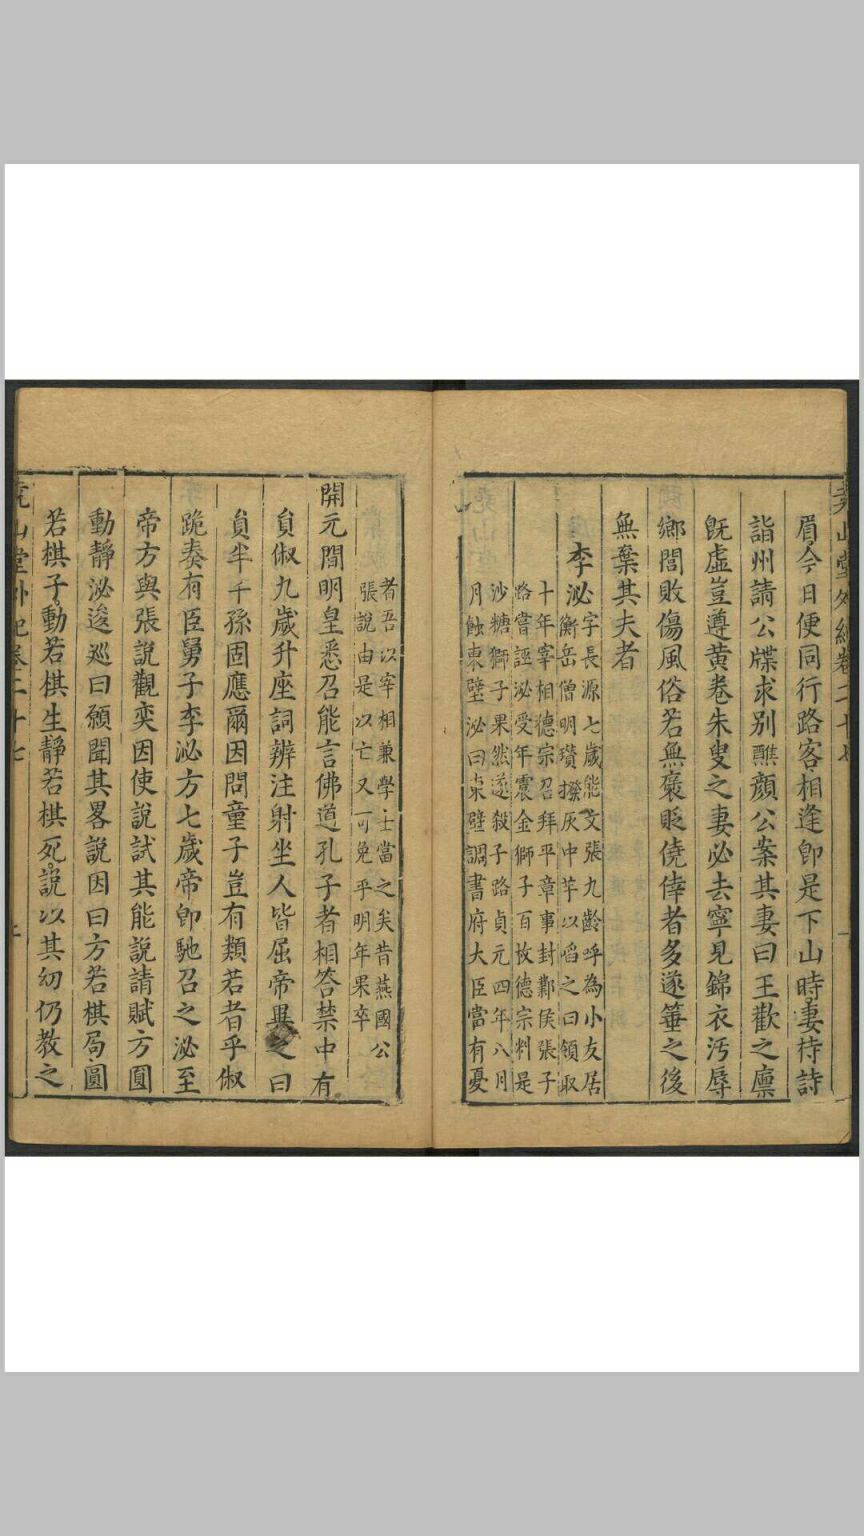 堯山堂外紀卷二十七
眉今日便同行路客相逢卽是下山時妻持詩
詣州請公牒求別醮顏公案其妻曰王歡之廪
旣虛豈遵黃卷朱叟之妻必去寧見錦衣汚辱
鄉閭敗傷風俗若無褒貶僥倖者多遂箠之後
無棄其夫者
李泌
字長源七歲能文張九齡呼為小友居
衡岳僧明瓚撥灰中芋以啗之曰領取
十年宰相德宗召拜平章事封鄴侯張子
路嘗誣泌受年震金獅子百枚德宗料是
沙糖獅子果然遂殺子路貞元四年八月
月蝕東壁泌曰東壁謂書府大臣當有憂
者吾以宰相兼學士當之矣昔燕國公
張說由是以亡又可免乎明年果卒
開元間明皇悉召能言佛道孔子者相答禁中有
貟俶九歲升座詞辨注射坐人皆屈帝異之曰
貟半千孫固應爾因問童子豈有類若者乎俶
跪奏有臣舅子李泌方七歲帝卽馳召之泌至
帝方與張說觀奕因使說試其能說請賦方圓
動靜泌逡廵曰願聞其畧說因曰方若棋局圓
若棋子動若棋生靜若棋死說以其幼仍教之
堯山堂外紀卷二十七